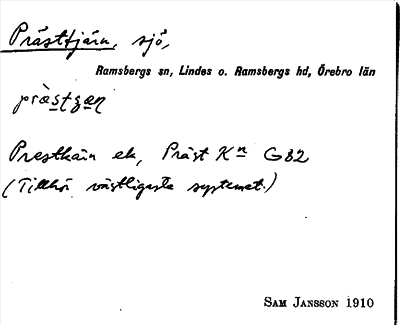 Prästtjärn, sjö,
Ramsbergs sn, Lindes o. Ramsbergs hd, Örebro län
Prestkärn ek, Präst Kn G82
(Tillhör västligaste systemet.)
SAM JANSSON 1910